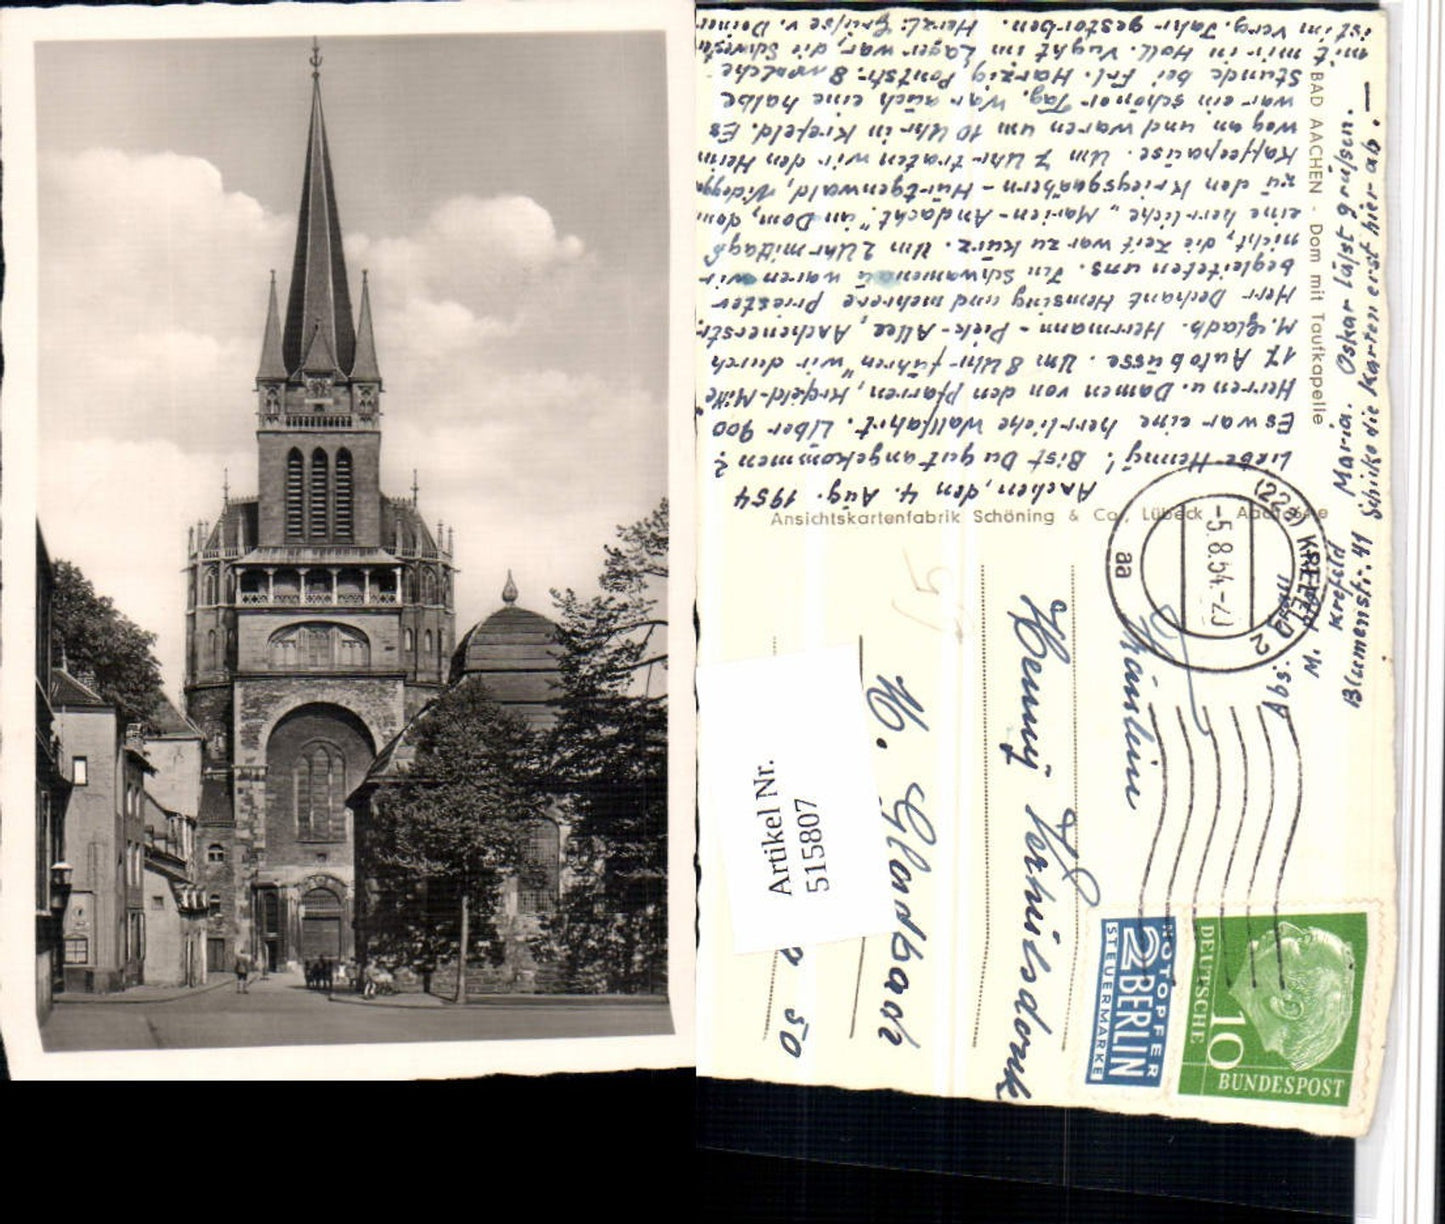 Aachen, den 4. Aug. 1954
Liebe Henny! Bist Du gut angekommen?
Es war eine herrliche Wallfahrt. Über 900
Herren u. Damen von den Pfarren, Krefeld-Mitte
17 Autobüsse. Um 8 Uhr führen wir durch
M. Gladb. Herrmann-Piek-Allee, Aachenerstr.
Herr Dechant Hemsing und mehrere Priester
begleiteten uns. In waren wir
nicht, die Zeit war zu kurz. Um 2 Uhr mittags
eine herrliche „Marien-Andacht" im Dom, dann
zu den Kriegsgräbern-Hürtgenwald,
Kaffeepause. Um 7 Uhr traten wir den Heim
weg an und waren um 10 Uhr in Krefeld. Es
war ein schöner Tag. War auch eine halbe
Stunde bei Frl. Harzig, Pontstr. 8 welche
mit mir in Holl. Vught im Lager war, die Schwester
ist im verg. Jahr gestorben. Herzl. Grüße v. Deiner
Maria. Oskar läßt grüßen.
Schicke die Karten erst hier ab. —
BAD AACHEN · Dom mit Taufkapelle
Ansichtskartenfabrik Schöning & Co., Lübeck
Abs.:
Krefeld
Blumenstr. 41
(22a) KREFELD 2
-5.8.54.-20
aa
Fräulein
Henny Verhülsdonk
M. Gladbach
50
NOTOPFER
2 BERLIN
STEUERMARKE
DEUTSCHE
10
BUNDESPOST
Artikel Nr.
515807